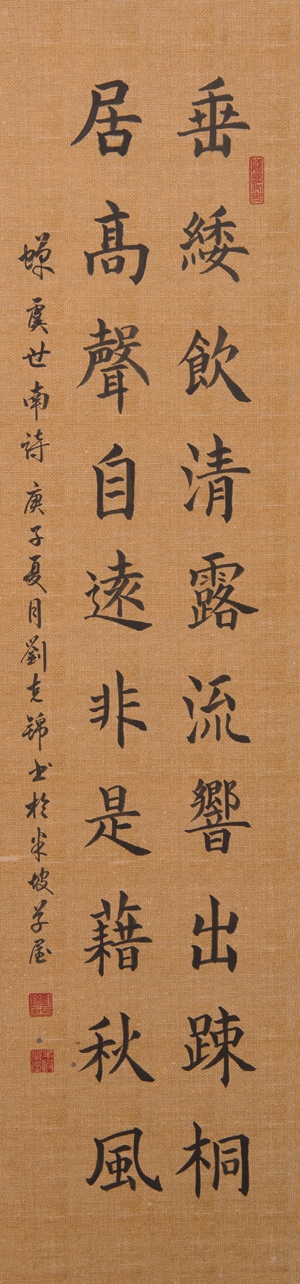 垂緌飲清露流響出疎桐
居髙聲自遠非是藉秋風
蟬虞世南詩庚子夏月劉克錦书於半坡草屋